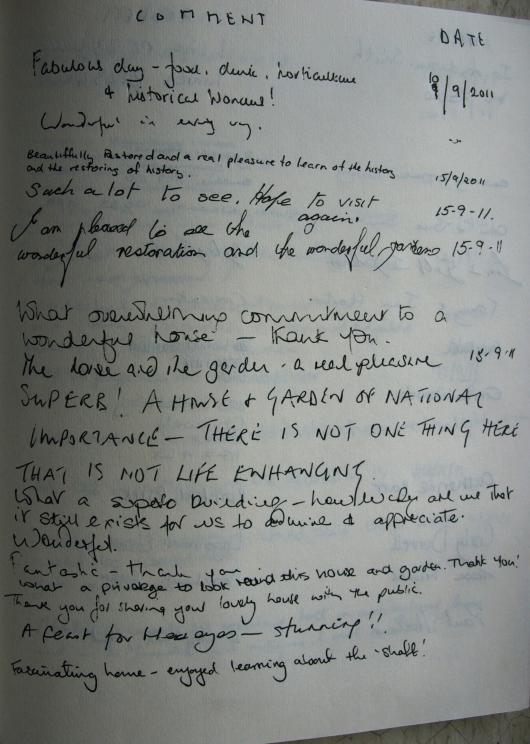 COMMENT
DATE
Fabulous day - food, drink, horticulture
& historical Wonders!
10/9/2011
Wonderful in every way.
Beautifully Restored and a real pleasure to learn of the history
and the restoring of history. 15/9/2011
Such a lot to see. Hope to visit
again. 15-9-11.
I am pleased to see the
wonderful restoration and the wonderful gardens 15-9-11
What overwhelming commitment to a
wonderful house - thank you.
The house and the garden - a real pleasure 15-9-11
SUPERB! A HOUSE & GARDEN OF NATIONAL
IMPORTANCE - THERE IS NOT ONE THING HERE
THAT IS NOT LIFE ENHANCING.
What a superb building - how lucky are we that
it still exists for us to admire & appreciate.
Wonderful.
Fantastic - thank you
What a privelege to look round this house and garden. Thank You!
Thank you for sharing your lovely house with the public.
A feast for the eyes - stunning!!
Fascinating home - enjoyed learning about the 'shaft'!